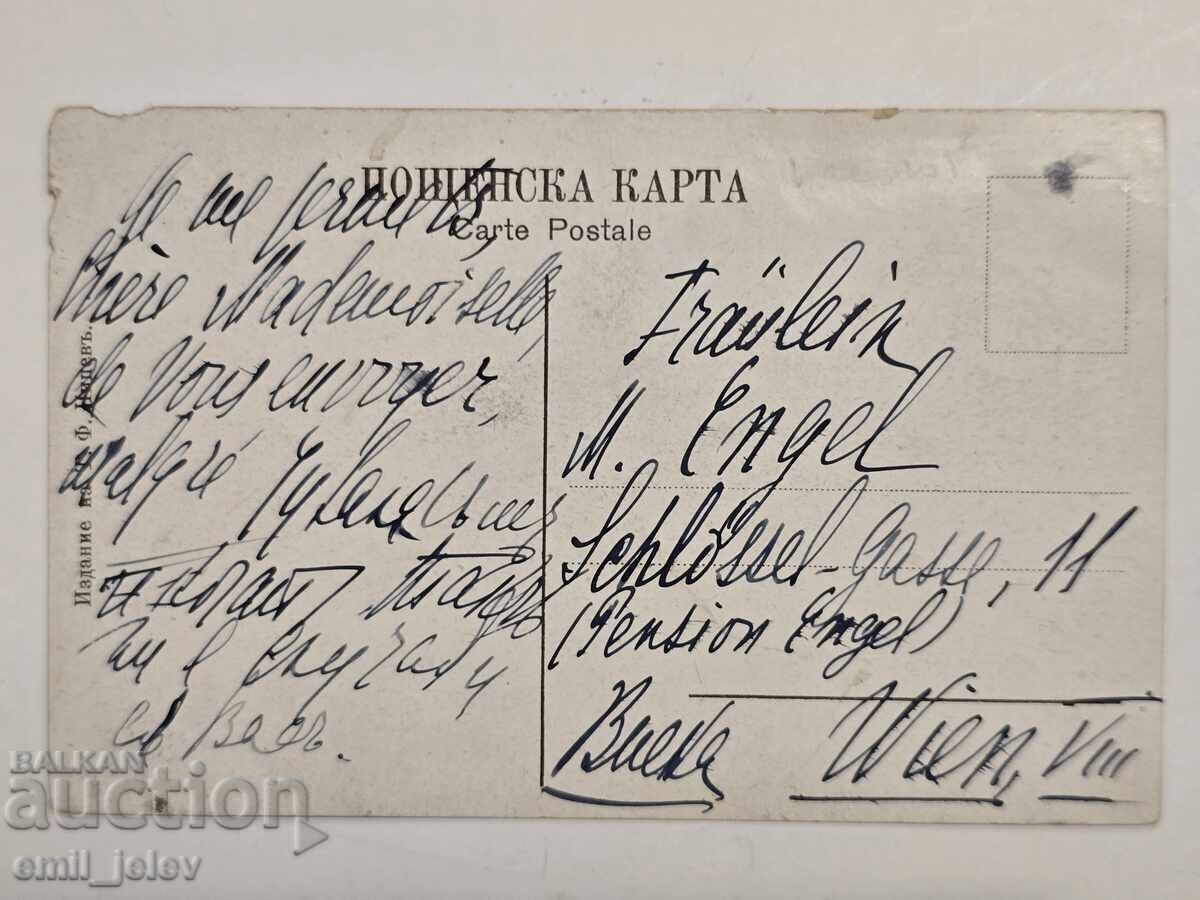 ПОЩЕНСКА КАРТА
Carte Postale
Je me permets,
Chère Mademoiselle,
de Vous envoyer,
malgré
ми е
съ Васъ.
Издание на Ф.
Fräulein
M. Engel
Schlössel-Gasse, 11
(Pension Engel)
Виена Wien, VIII
BALKAN
auction
emil_jelev